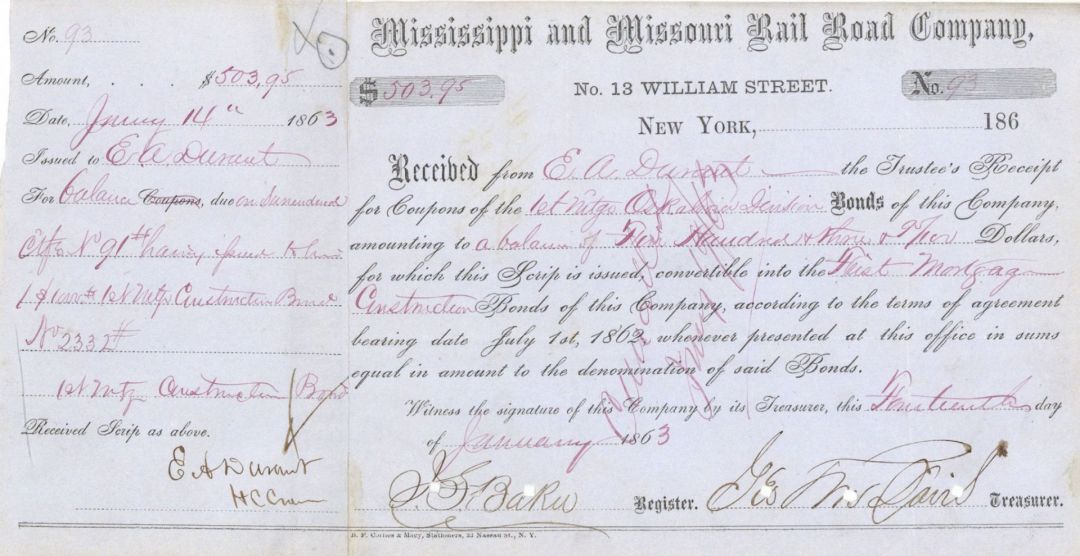 No. 93
Amount, . . . $503.95
Date, Jany 14" 1863
Issued to E A Durant
For balance Coupons, due on surrendered
Ctf. No 91 having issued to him
1 $1000 1st Mtge Construction Bond
No 2332
1st Mtge Construction Bond
Received Scrip as above.
E A Durant
Mississippi and Missouri Rail Road Company,
$ 503.95 No. 13 WILLIAM STREET. No. 93
NEW YORK, 186
Received from E. A. Durant the Trustee's Receipt
for Coupons of the 1st Mtge Oskaloosa Division Bonds of this Company,
amounting to a balance of Five Hundred & three & Dollars,
for which this Scrip is issued, convertible into the First Mortgage
Construction Bonds of this Company, according to the terms of agreement
bearing date July 1st, 1862, whenever presented at this office in sums
equal in amount to the denomination of said Bonds.
Witness the signature of this Company by its Treasurer, this Fourteenth day
of January 1863
Register. Treasurer.
D. F. Cornes & Macy, Stationers, 33 Nassau St., N. Y.